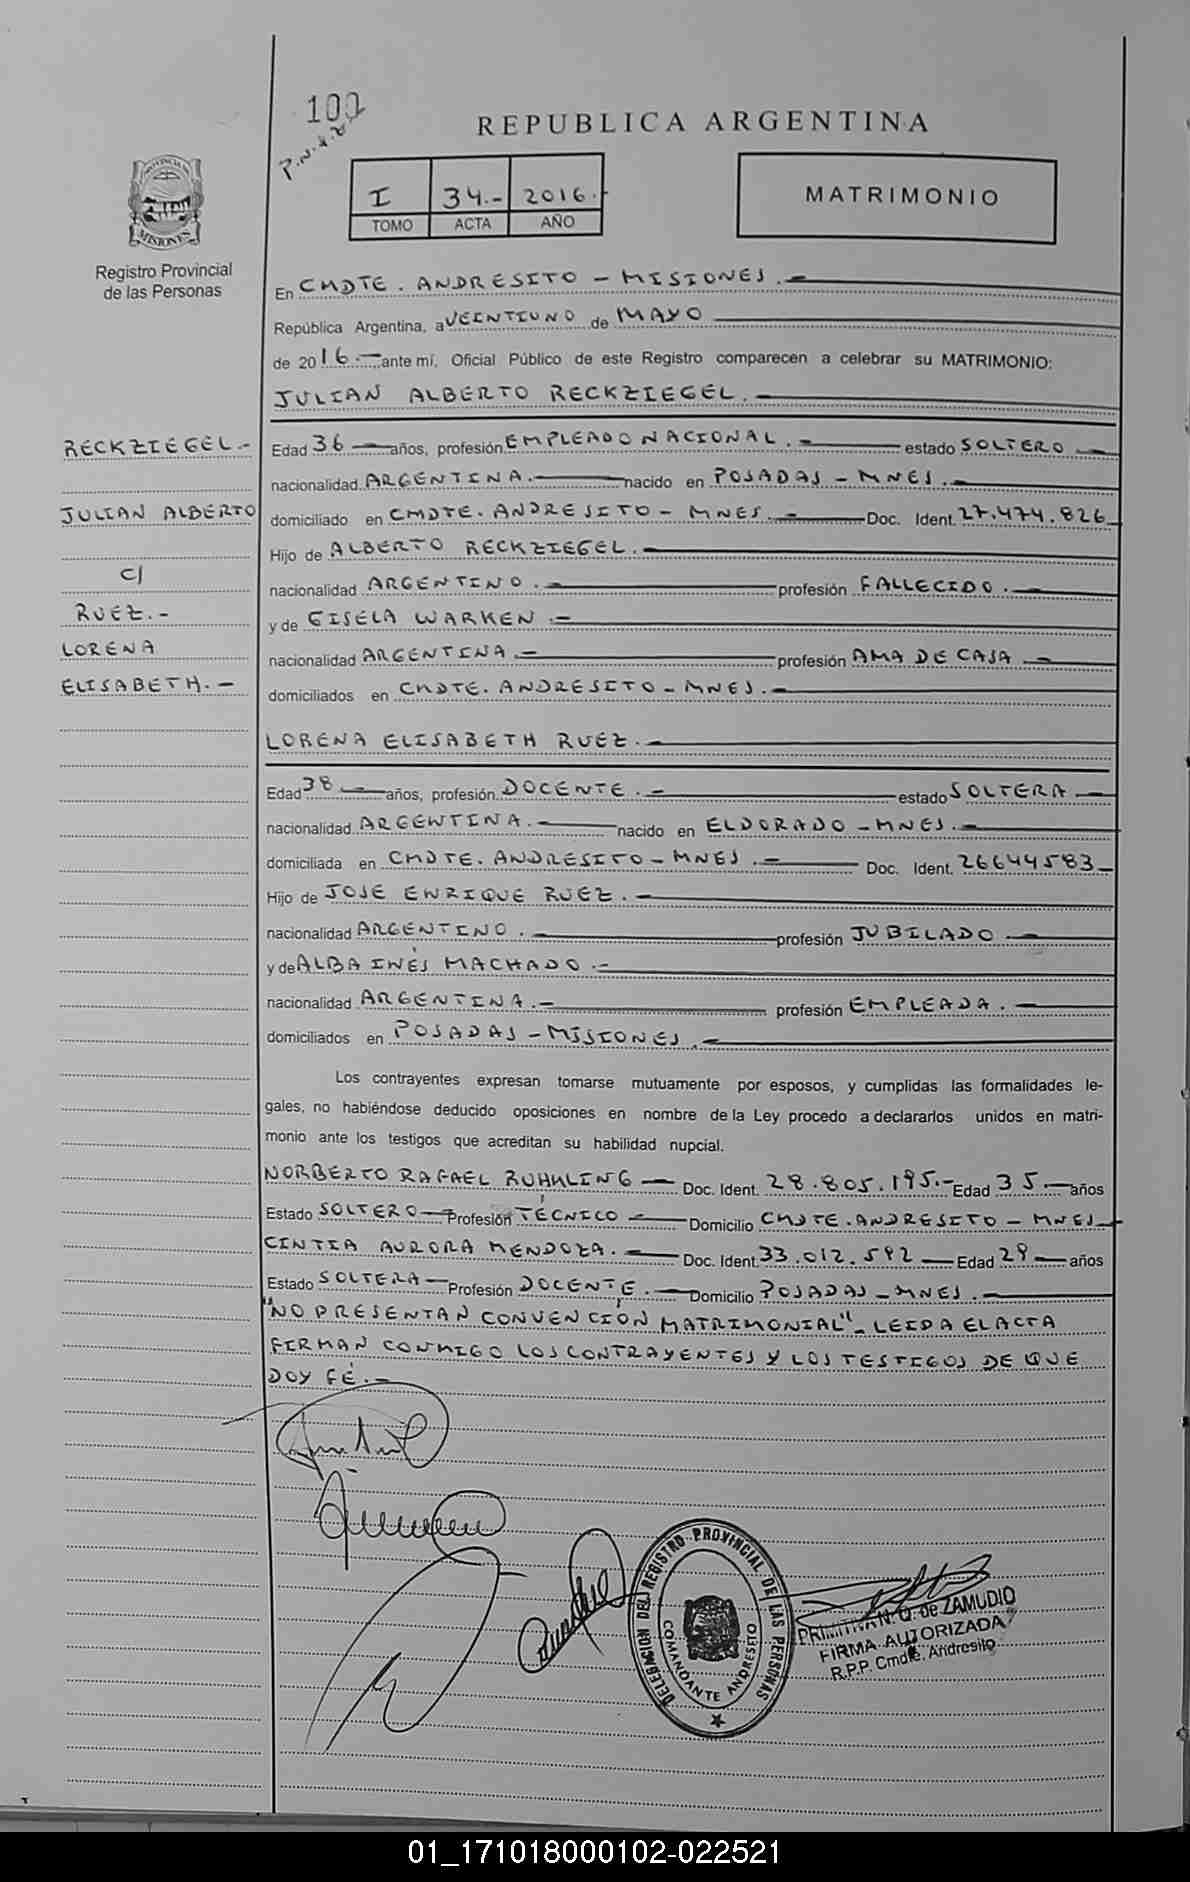 100
P.N.A.2
REPUBLICA ARGENTINA
I 34.- 2016.-
TOMO ACTA AÑO
MATRIMONIO
PROVINCIA DE
MISIONES
Registro Provincial
de las Personas
En CMDTE. ANDRESITO - MISIONES.-
República Argentina, a VEINTIUNO de MAYO
de 2016.- ante mí, Oficial Público de este Registro comparecen a celebrar su MATRIMONIO:
JULIAN ALBERTO RECKZIEGEL.-
RECKZIEGEL.-
JULIAN ALBERTO
C/
RUEZ.-
LORENA
ELISABETH.-
Edad 36 años, profesión EMPLEADO NACIONAL.- estado SOLTERO
nacionalidad ARGENTINA.- nacido en POSADAS - MNES.-
domiciliado en CMDTE. ANDRESITO - MNES.- Doc. Ident. 27.474.826
Hijo de ALBERTO RECKZIEGEL.-
nacionalidad ARGENTINO.- profesión FALLECIDO.-
y de GISELA WARKEN.-
nacionalidad ARGENTINA.- profesión AMA DE CASA.-
domiciliados en CMDTE. ANDRESITO - MNES.-
LORENA ELISABETH RUEZ.-
Edad 38 años, profesión DOCENTE.- estado SOLTERA
nacionalidad ARGENTINA.- nacido en ELDORADO - MNES.-
domiciliada en CMDTE. ANDRESITO - MNES.- Doc. Ident. 26644583
Hijo de JOSE ENRIQUE RUEZ.-
nacionalidad ARGENTINO.- profesión JUBILADO.-
y de ALBA INÉS MACHADO.-
nacionalidad ARGENTINA.- profesión EMPLEADA.-
domiciliados en POSADAS - MISIONES.-
Los contrayentes expresan tomarse mutuamente por esposos, y cumplidas las formalidades le-
gales, no habiéndose deducido oposiciones en nombre de la Ley procedo a declararlos unidos en matri-
monio ante los testigos que acreditan su habilidad nupcial.
NORBERTO RAFAEL RUHKLING - Doc. Ident. 28.805.195.- Edad 35.- años
Estado SOLTERO - Profesión TÉCNICO - Domicilio CMDTE. ANDRESITO - MNES
CINTIA AURORA MENDOZA.- Doc. Ident. 33.012.592 - Edad 29 - años
Estado SOLTERA - Profesión DOCENTE.- Domicilio POSADAS - MNES.-
"NO PRESENTAN CONVENCIÓN MATRIMONIAL" - LEIDA EL ACTA
FIRMAN CONMIGO LOS CONTRAYENTES Y LOS TESTIGOS DE QUE
DOY FÉ.-
DELEGACION DEL REGISTRO PROVINCIAL DE LAS PERSONAS
COMANDANTE ANDRESITO
PRIMITIVA N. Q. de ZAMUDIO
FIRMA AUTORIZADA
R.P.P. Cmdte. Andresito
01_171018000102-022521